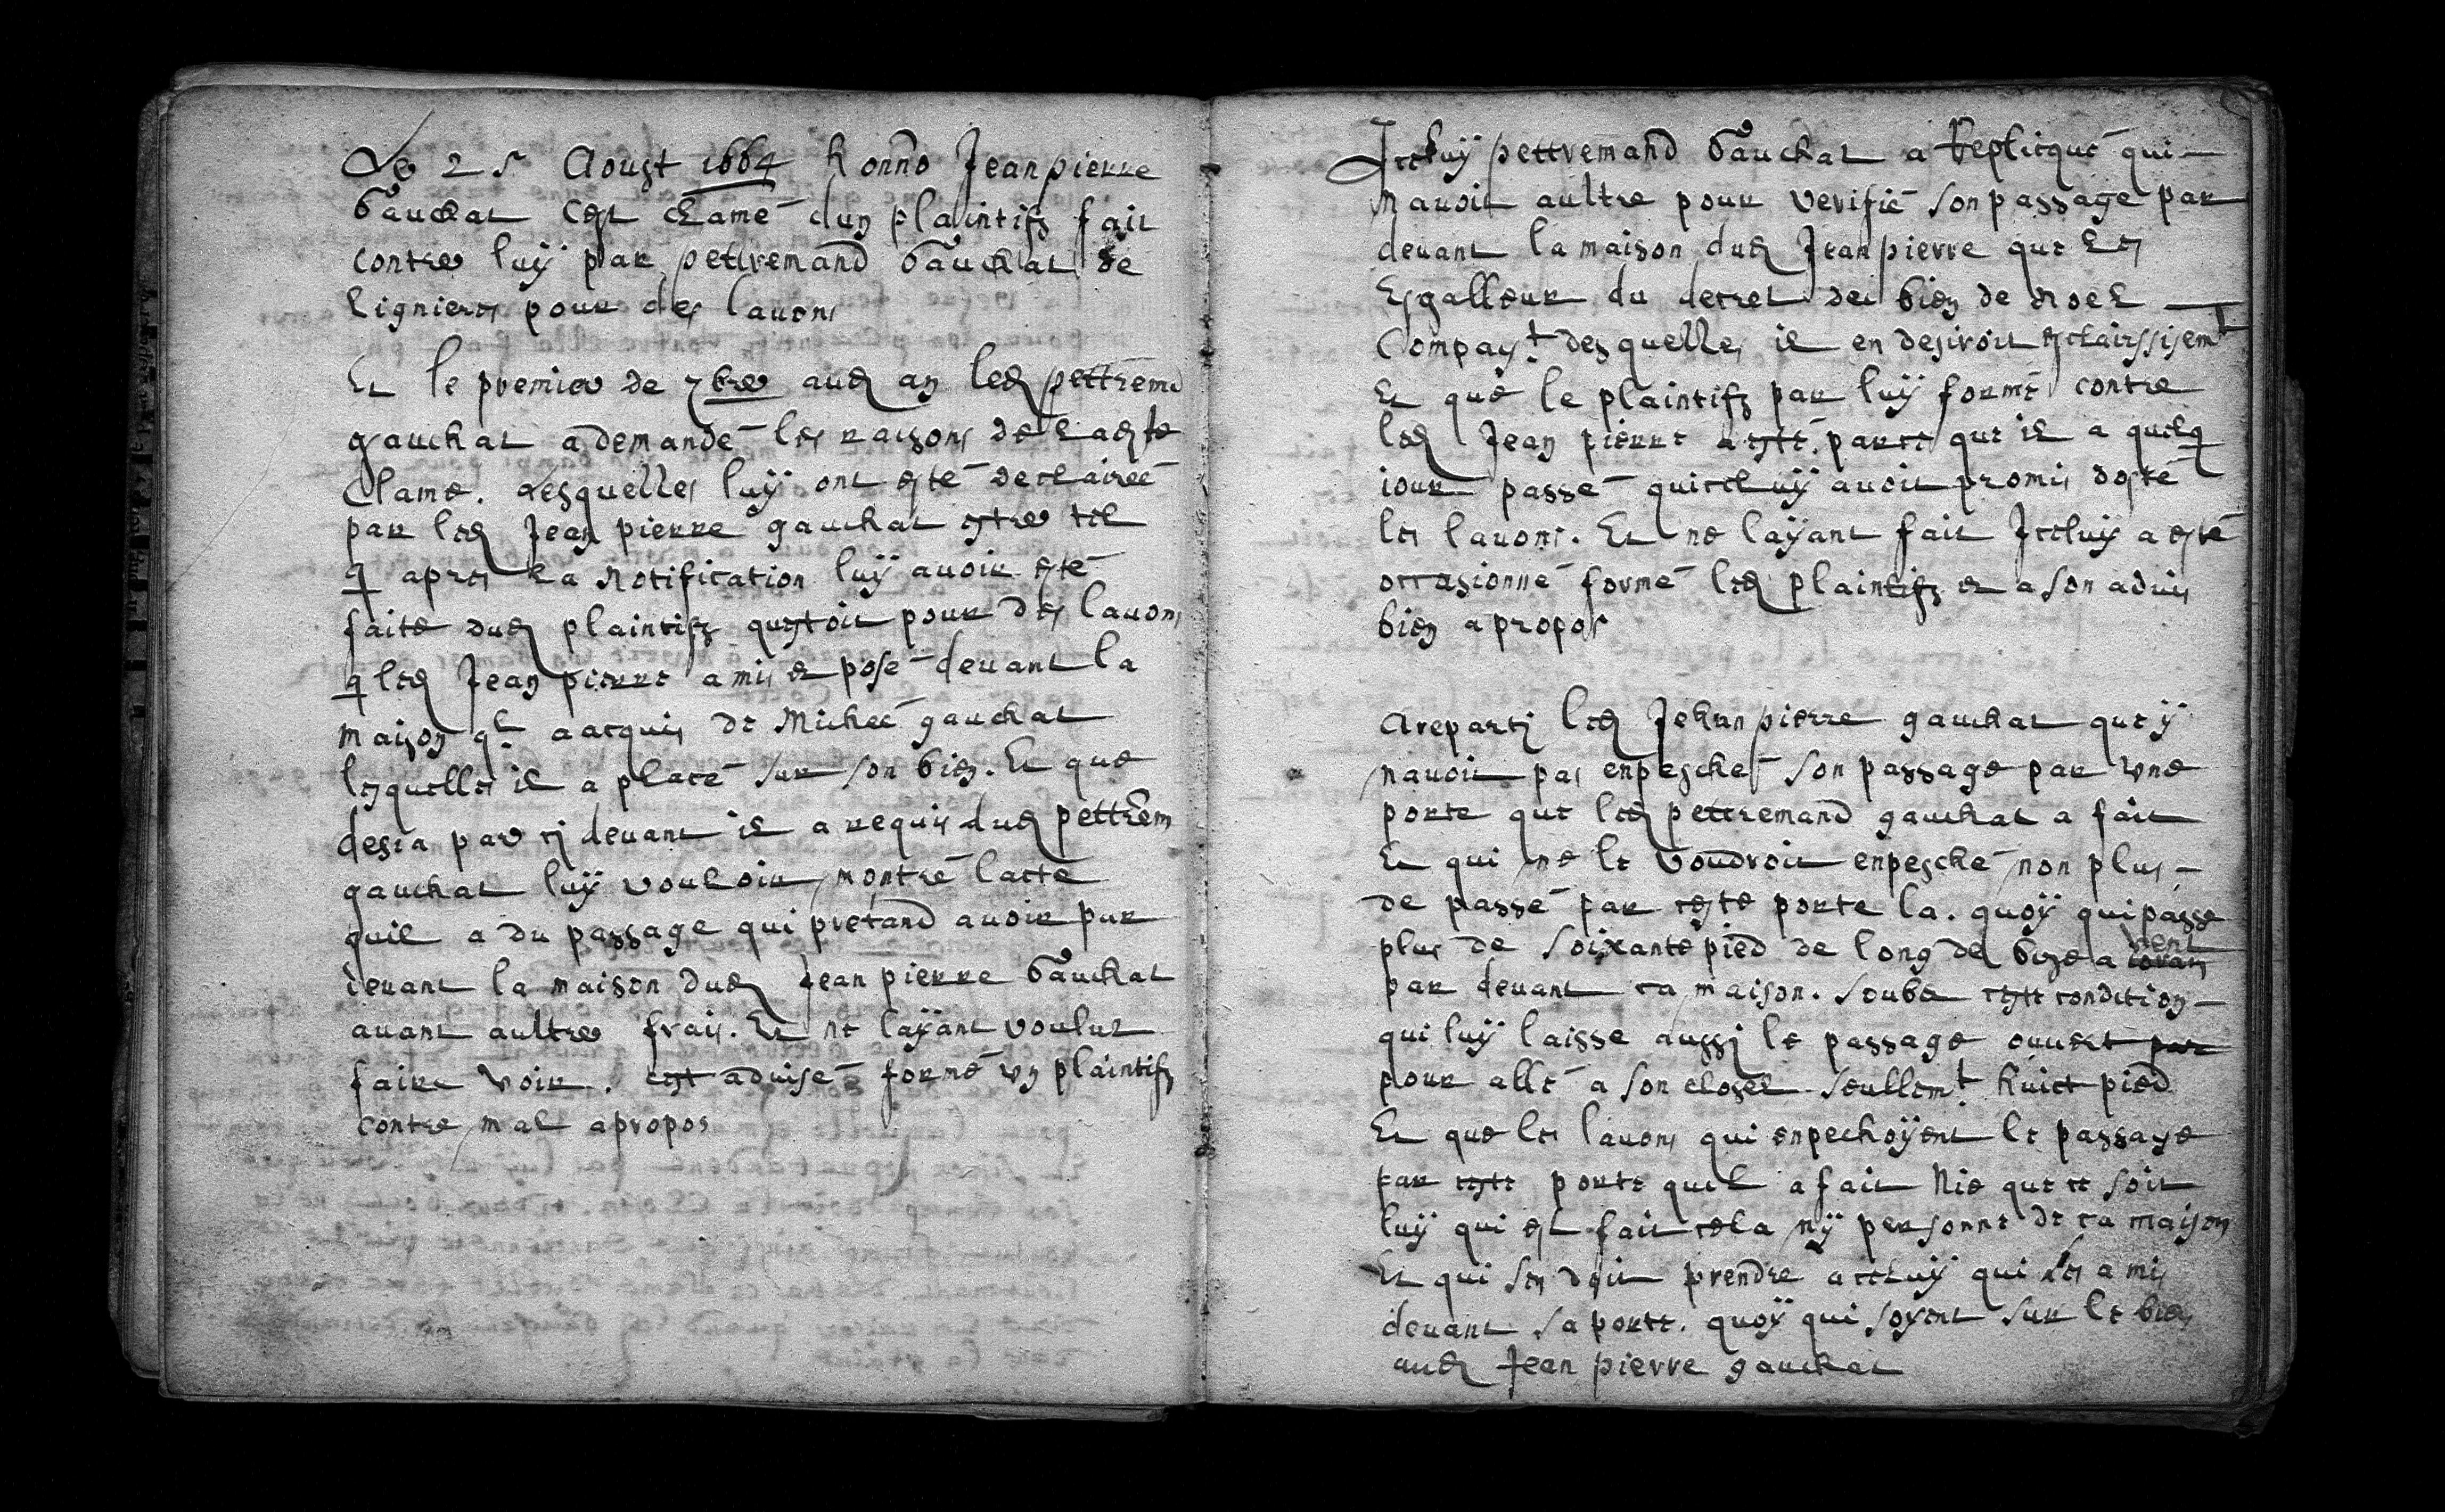 Le 25 Aoust 1664 honno Jean pierre
Gauchat c'est clamé dun plaintifz fait
contre luÿ par pettremand Gauchat de
Lignieres pour des lauons
Et le premier de 7bre aud an led pettremd
gauchat a demandé les raisons de lad te
Clame. Lesquelles luÿ ont esté declairée
par led Jean pierre gauchat estre tel
q apres la notification luÿ auoir esté
faite dud plaintifz questoit pour des lauons
q led Jean pierre a mis et posé deuant la
maison ql a acquis de Michee gauchat
lesquelles il a placé sur son bien. Et que
desia par cy deuant il a requis dud pettrem
gauchat luÿ vouloir montré lacte
quil a du passage qui pretand auoir par
deuant la maison dud Jean pierre Gauchat
auant aultre frais. Et ne laÿant voulut
faire voir. cest aduisé formé vn plaintifz
contre mal apropos
Iceluÿ pettremand Gauchat a Replicqué qui
nauoit aultre pour verifié son passage par
deuant la maison dud Jean pierre que les
Esgalleur du decret des bien de noel
Compayt desquelles il en desiroit esclairssisemt
Et que le plaintifz par luÿ formé contre
led Jean pierre a esté. parce que il a quelq
iour passé quiceluÿ auoit promis dosté
les lauons. Et ne laÿant fait Iceluÿ a esté
occasionné formé led plaintifz et a son aduis
bien apropos
A reparty led Jehan pierre gauchat que ÿ
nauoit pas enpesché son passage par vne
porte que led pettremand gauchat a fait
Et qui ne le voudroit enpesché non plus
de passé par ceste porte la. quoÿ qui passe
plus de soixante pied de long de bize a vent
par deuant ca maison. soubz ceste condition
qui luÿ laisse aussy le passage ouuert par
pour allé a son closel seullemt huict pied
Et que les lauons qui enpechoÿent le passage
par ceste porte quil a fait Nie que ce soit
luÿ qui est fait cela nÿ personne de ca maison
Et qui sen doit prendre a celuÿ qui les a mis
deuant sa porte. quoÿ qui soyent sur le bien
aud Jean pierre gauchat